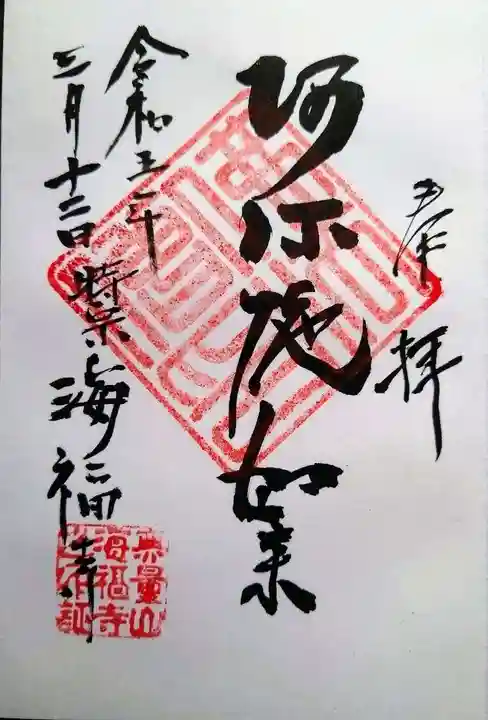 奉拝
阿弥陀如来
令和三年
三月十二日 時宗 海福寺
無量山
海福寺